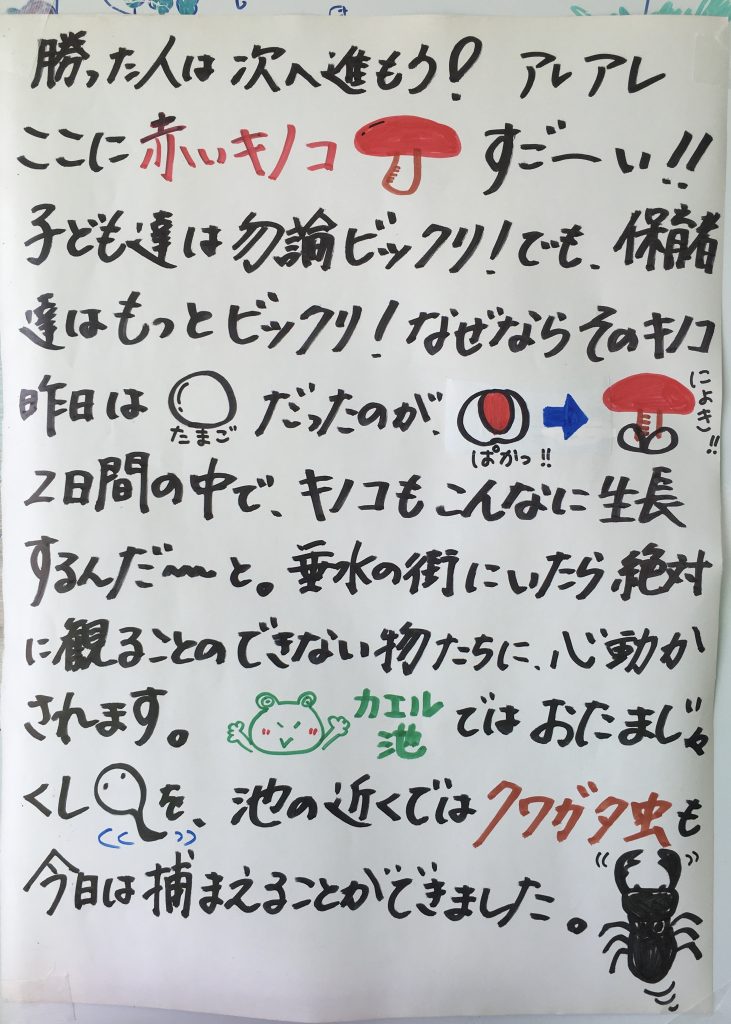 勝った人は次へ進もう! アレアレ
ここに赤いキノコ すごーい!!
子ども達は勿論ビックリ!でも、保育者
達はもっとビックリ!なぜならそのキノコ
昨日は たまご だったのが、 ぱかっ!! にょき!!
2日間の中で、キノコもこんなに生長
するんだ〜と。垂水の街にいたら絶対
に観ることのできない物たちに、心動か
されます。 カエル池 ではおたまじゃ
くし を、池の近くではクワガタ虫も
今日は捕まえることができました。